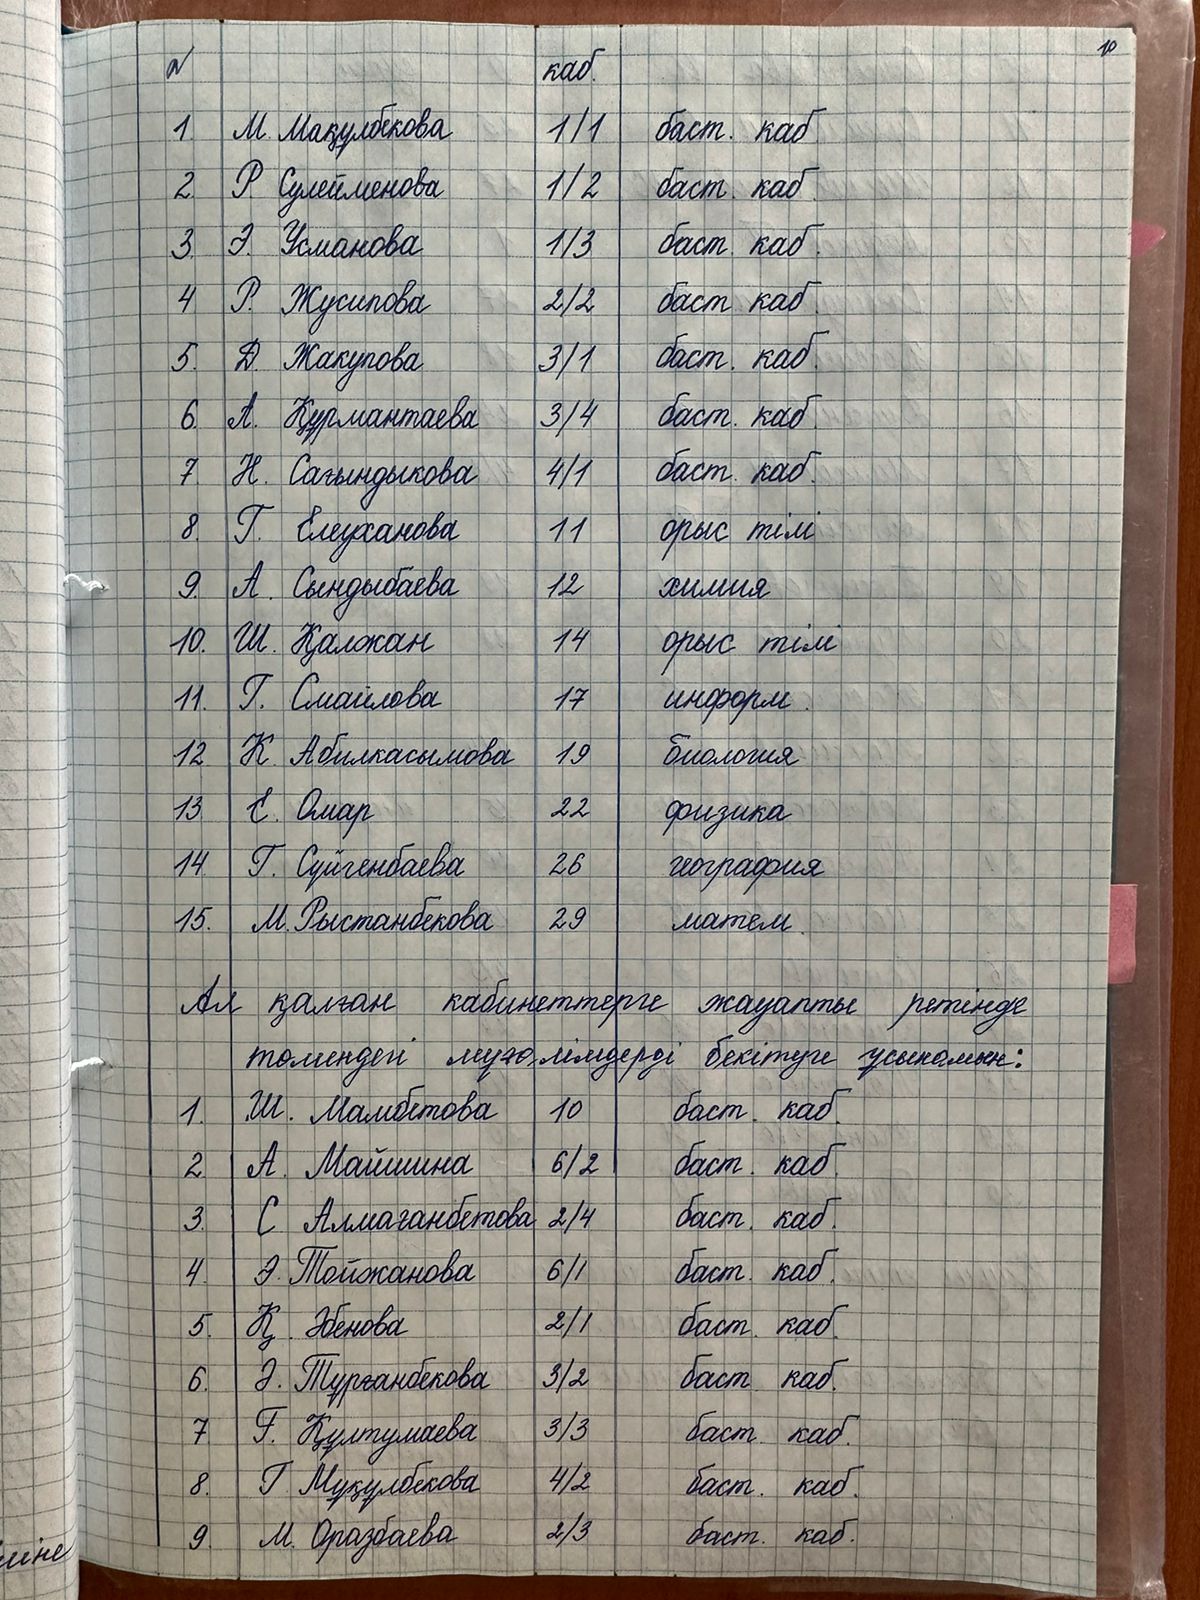 10
№ каб.
1 М. Мақұлбекова 1/1 баст. каб
2 Р Сулейменова 1/2 баст. каб.
3. Э. Усманова 1/3 баст. каб.
4 Р. Жусипова 2/2 баст каб.
5. Д. Жакупова 3/1 баст. каб.
6. А. Құрмантаева 3/4 баст. каб.
7. Н. Сағындыкова 4/1 баст. каб.
8. Г. Елеуханова 11 орыс тілі
9. А. Сындыбаева 12 химия
10. Ш. Қалжан 14 орыс тілі
11. Г. Смайлова 17 информ.
12 К Абилкасымова 19 биология
13. Е. Омар 22 физика
14. Г. Сүйгенбаева 26 география
15. М. Рыстанбекова 29 матем.
Ал қалған кабинеттерге жауапты ретінде
төмендегі мұғалімдерді бекітуге ұсынамын:
1. Ш. Мамбетова 10 баст. каб.
2. А. Майшина 6/2 баст. каб.
3. С Алмаганбетова 2/4 баст. каб.
4. Э. Тойжанова 6/1 баст. каб.
5. Қ. Әбенова 2/1 баст. каб.
6. Ә. Тұрғанбекова 3/2 баст каб.
7 Г. Құлтумаева 3/3 баст. каб.
8. Г Мұқұлбекова 4/2 баст. каб.
9. М. Оразбаева 2/3 баст. каб.